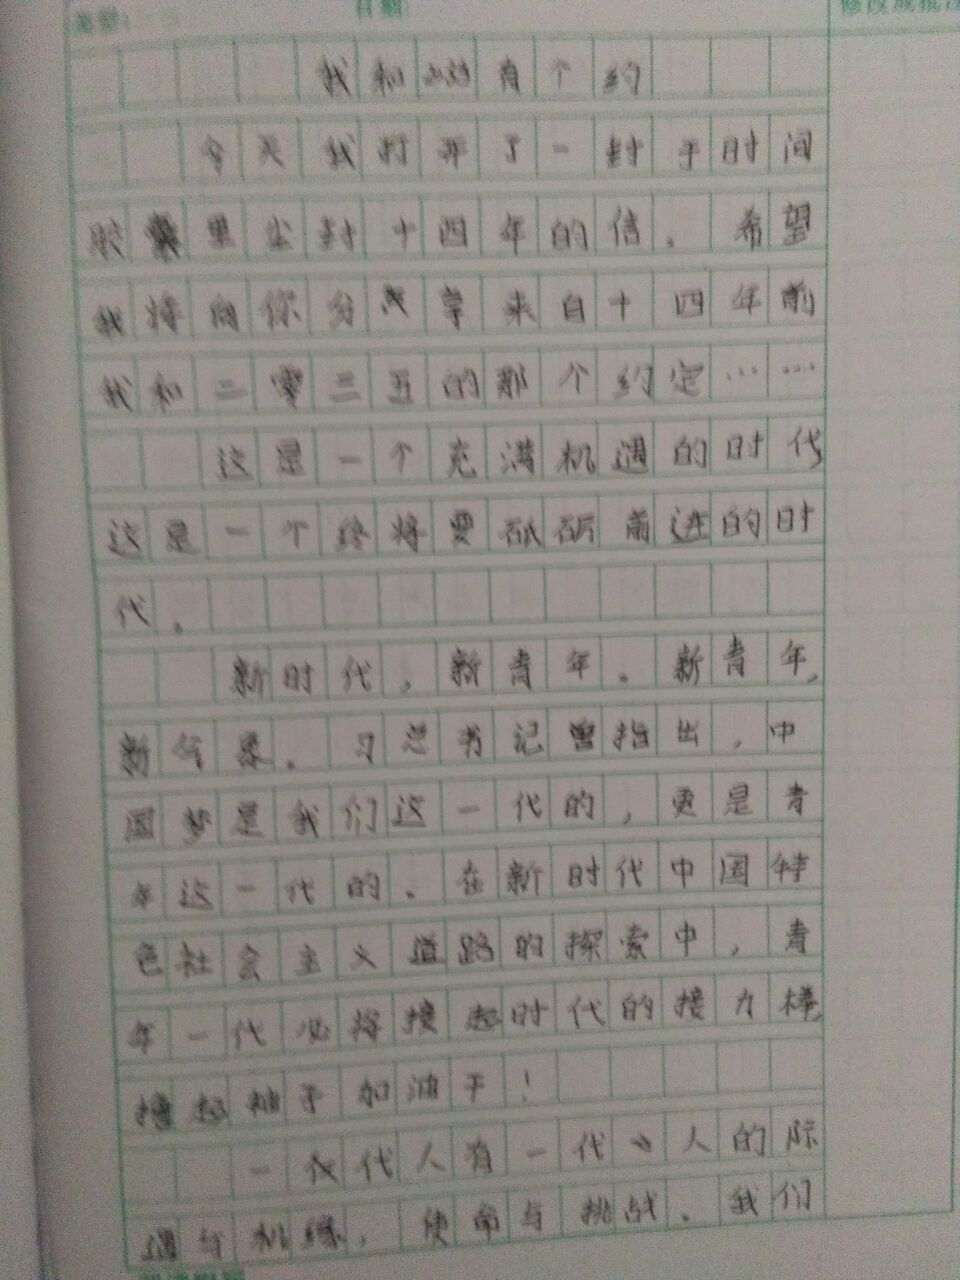 类型: 日期: 修改或批注
我和她有个约
今天我打开了一封于时间
胶囊里尘封十四年的信。希望
我将向你分享来自十四年前
我和二零三五的那个约定……
这是一个充满机遇的时代
这是一个终将要砥砺前进的时
代。
新时代,新青年。新青年,
新气景。习总书记曾指出,中
国梦是我们这一代的,更是青
年这一代的。在新时代中国特
色社会主义道路的探索中,青
年一代必将接起时代的接力棒
撸起袖子加油干!
一代人有一代人的际
遇与机缘,使命与挑战。我们